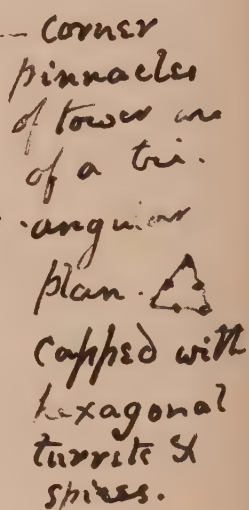 - Corner
pinnacles
of tower are
of a tri-
angular
plan.
Capped with
hexagonal
turrets &
spires.